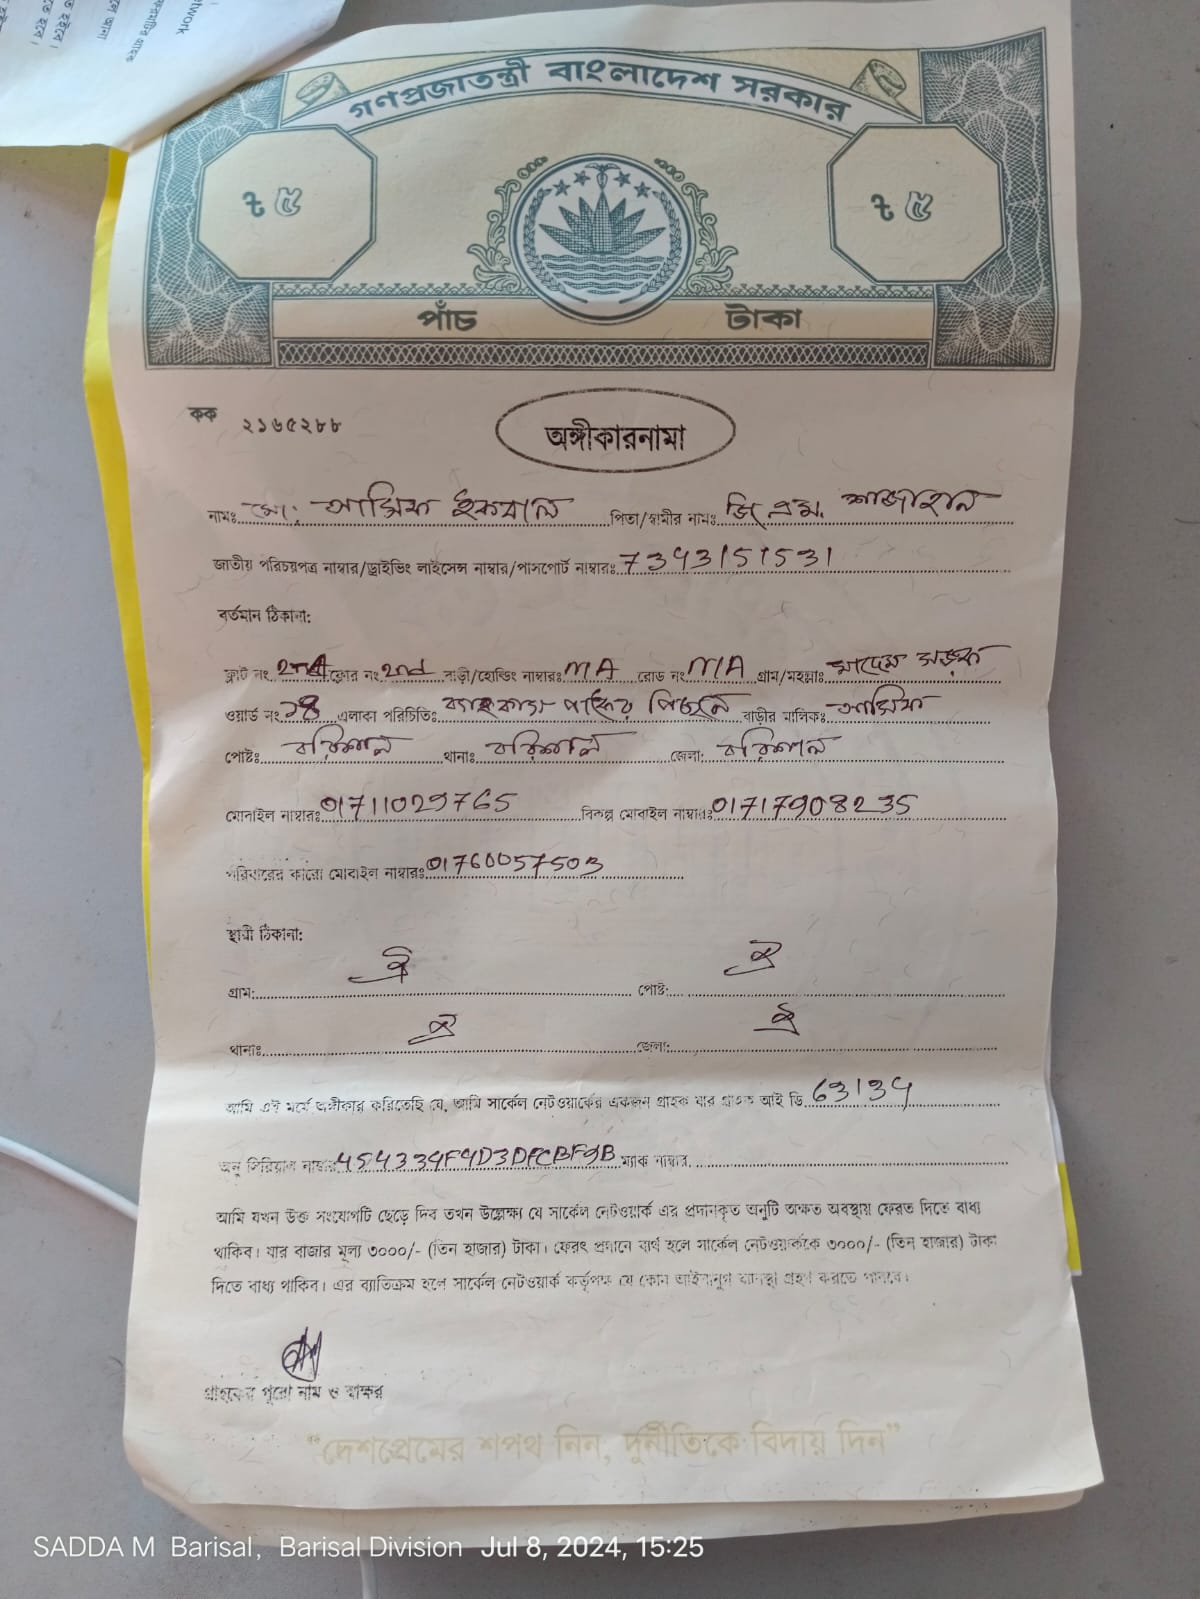 গণপ্রজাতন্ত্রী বাংলাদেশ সরকার
৳ ৫ ৳ ৫
পাঁচ টাকা
কক ২১৬৫২৮৮
অঙ্গীকারনামা
নামঃ মোঃ আসিফ ইকবাল পিতা/স্বামীর নামঃ জি এম. শাজাহান
জাতীয় পরিচয়পত্র নাম্বার/ড্রাইভিং লাইসেন্স নাম্বার/পাসপোর্ট নাম্বারঃ 7343151531
বর্তমান ঠিকানা:
ফ্লাট নং ফ্লোর নং 2nd বাড়ী/হোল্ডিং নাম্বারঃ N/A রোড নং N/A গ্রাম/মহল্লাঃ সড়ক
ওয়ার্ড নং ১৪ এলাকা পরিচিতিঃ পিছনে বাড়ীর মালিকঃ আসিফ
পোষ্টঃ বরিশাল থানাঃ বরিশাল জেলা: বরিশাল
মোবাইল নাম্বারঃ 01711029765 বিকল্প মোবাইল নাম্বারঃ 01717908235
পরিবারের কারো মোবাইল নাম্বারঃ 01760057503
স্থায়ী ঠিকানা:
গ্রাম: ঐ পোষ্ট: ঐ
থানাঃ ঐ জেলা: ঐ
আমি এই মর্মে অঙ্গীকার করিতেছি যে, আমি সার্কেল নেটওয়ার্কের একজন গ্রাহক যার গ্রাহক আই ডি 63134
অনু সিরিয়াল নাম্বার 454334F4D3DFCBF9B ম্যাক নাম্বার
আমি যখন উক্ত সংযোগটি ছেড়ে দিব তখন উল্লেক্ষ্য যে সার্কেল নেটওয়ার্ক এর প্রদানকৃত অনুটি অক্ষত অবস্থায় ফেরত দিতে বাধ্য
থাকিব। যার বাজার মূল্য ৩০০০/- (তিন হাজার) টাকা। ফেরৎ প্রদানে ব্যর্থ হলে সার্কেল নেটওয়ার্ককে ৩০০০/- (তিন হাজার) টাকা
দিতে বাধ্য থাকিব। এর ব্যাতিক্রম হলে সার্কেল নেটওয়ার্ক কর্তৃপক্ষ যে কোন আইনানুগ ব্যবস্থা গ্রহণ করতে পারবে।
গ্রাহকের পুরো নাম ও স্বাক্ষর
"দেশপ্রেমের শপথ নিন, দুর্নীতিকে বিদায় দিন"
SADDA M Barisal, Barisal Division Jul 8, 2024, 15:25